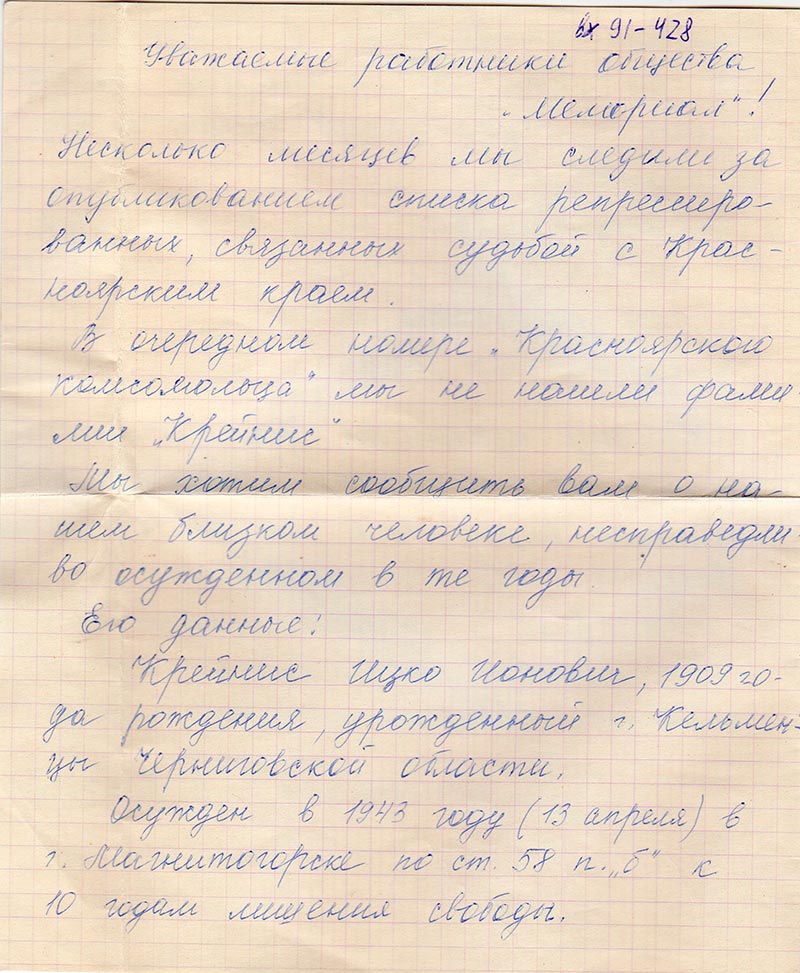 вх 91-428
Уважаемые работники общества
„Мемориал"!
Несколько месяцев мы следили за
опубликованием списка репрессиро-
ванных, связанных судьбой с Крас-
ноярским краем.
В очередном номере „Красноярского
комсомольца" мы не нашли фами-
лии „Крейнис"
Мы хотим сообщить вам о на-
шем близком человеке, несправедли-
во осужденном в те годы.
Его данные:
Крейнис Ицко Ионович, 1909 го-
да рождения, урожденный г. Кельмен-
цы Черниговской области.
Осужден в 1943 году (13 апреля) в
г. Магнитогорске по ст. 58 п. „б" к
10 годам лишения свободы.